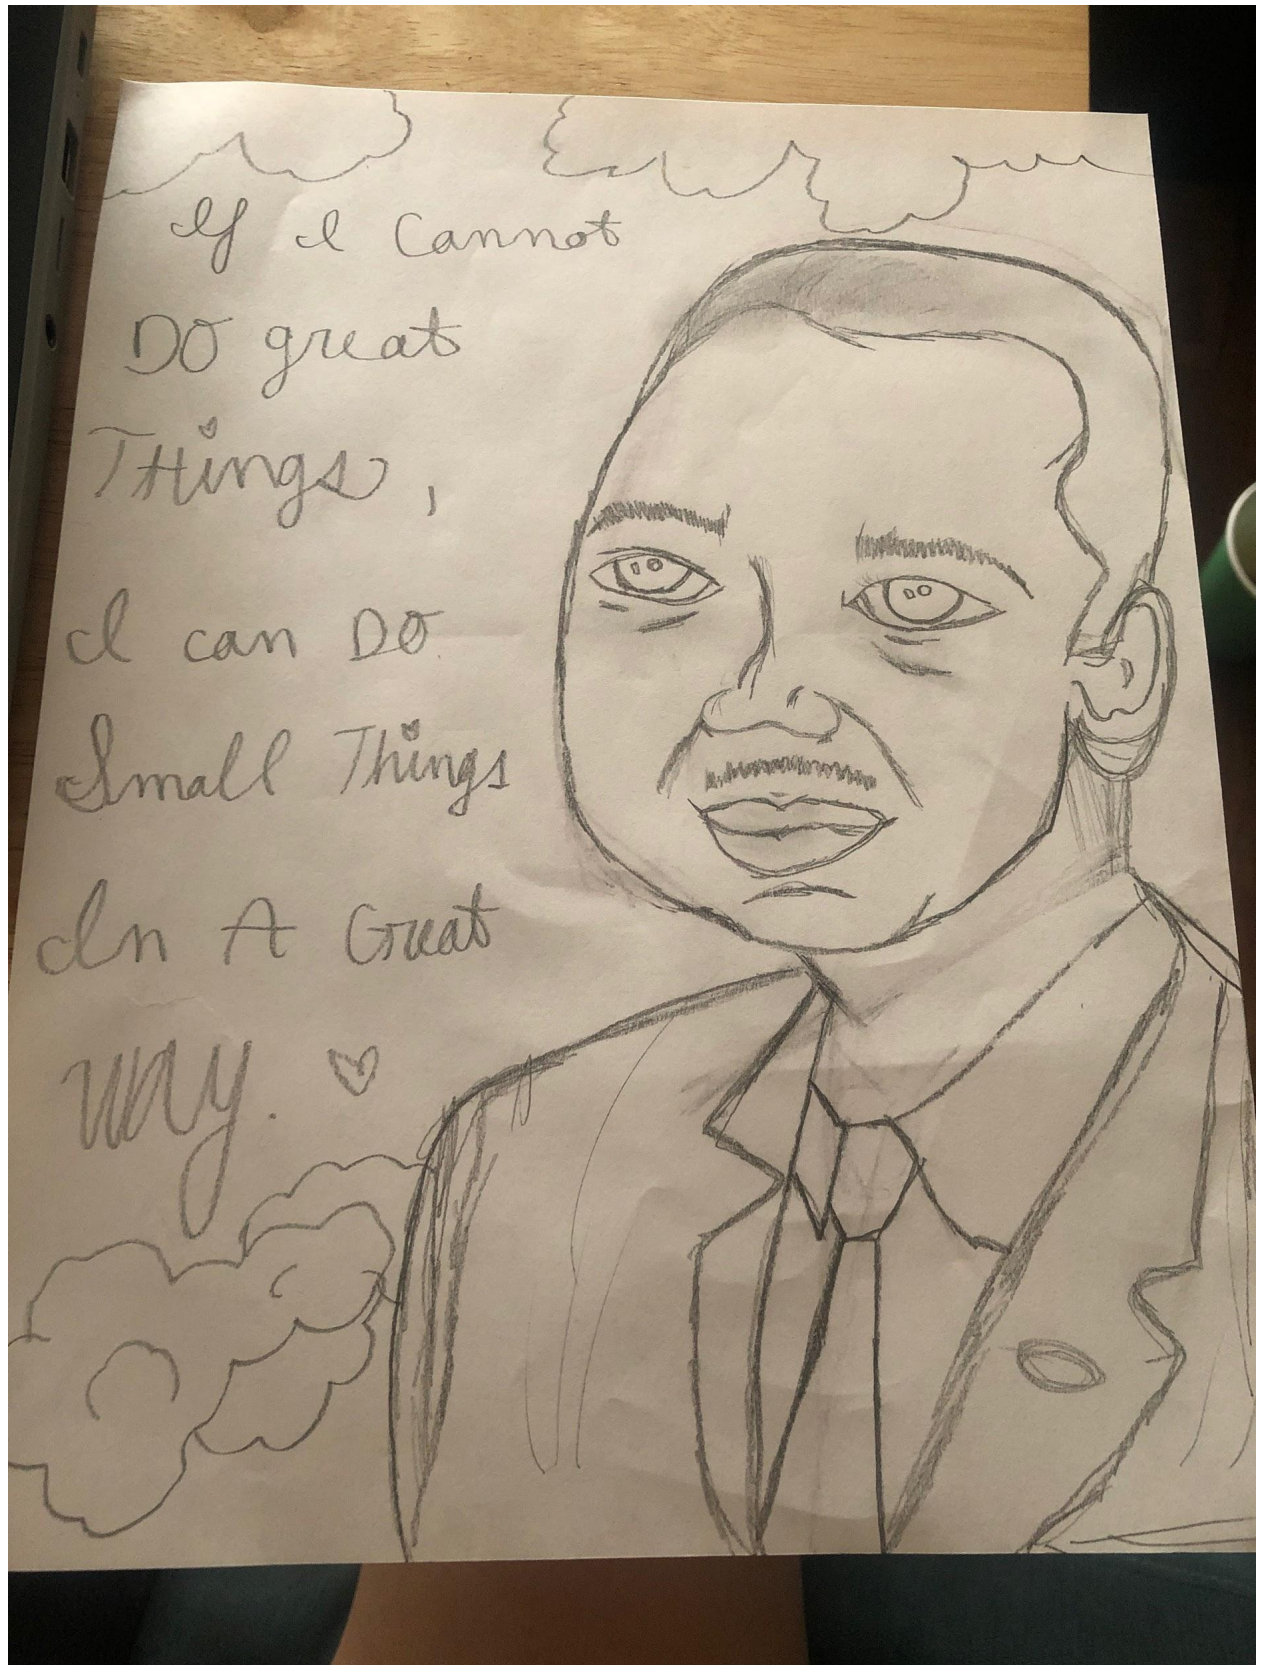 If I Cannot
DO great
THings,
I can DO
Small Things
In A Great
WAy.